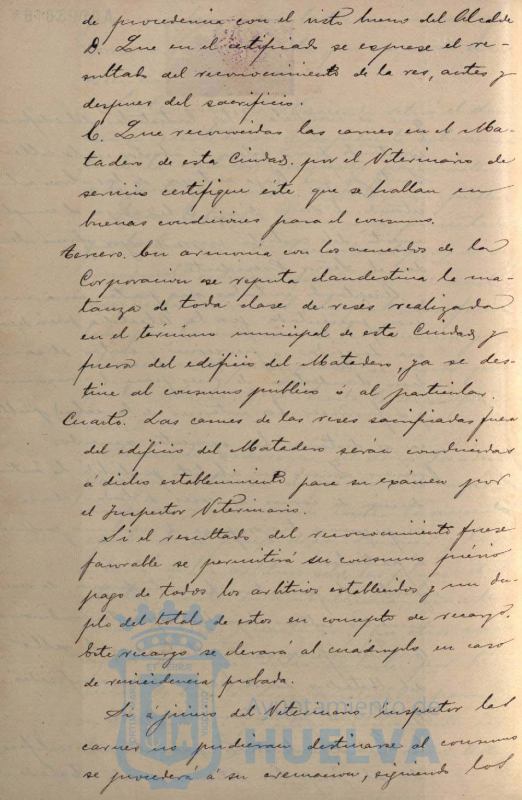 de procedencia con el visto bueno del Alcalde
B. Que en el certificado se exprese el re-
sultado del reconocimiento de la res, antes y
despues del sacrificio.
C. Que reconocidas las carnes en el Ma-
tadero de esta Ciudad, por el Veterinario de
servicio certifique éste que se hallan en
buenas condiciones para el consumo.
Tercero. En armonía con los acuerdos de la
Corporacion se reputa clandestina la ma-
tanza de toda clase de reses realizada
en el término municipal de esta Ciudad y
fuera del edificio del Matadero, ya se des-
tine al consumo público ó al particular.
Cuarto. Las carnes de las reses sacrificadas fuera
del edificio del Matadero serán conducidas
á dicho establecimiento para su exámen por
el Inspector Veterinario.
Si el resultado del reconocimiento fuese
favorable se permitirá su consumo prévio
pago de todos los arbitrios establecidos y un du-
plo del total de estos en concepto de recargo.
Este recargo se elevará al cuádruplo en caso
de reincidencia probada.
Si á juicio del Veterinario inspector las
carnes no pudieran destinarse al consumo
se procederá á su cremacion, siguiendo los
Ayuntamiento de
HUELVA